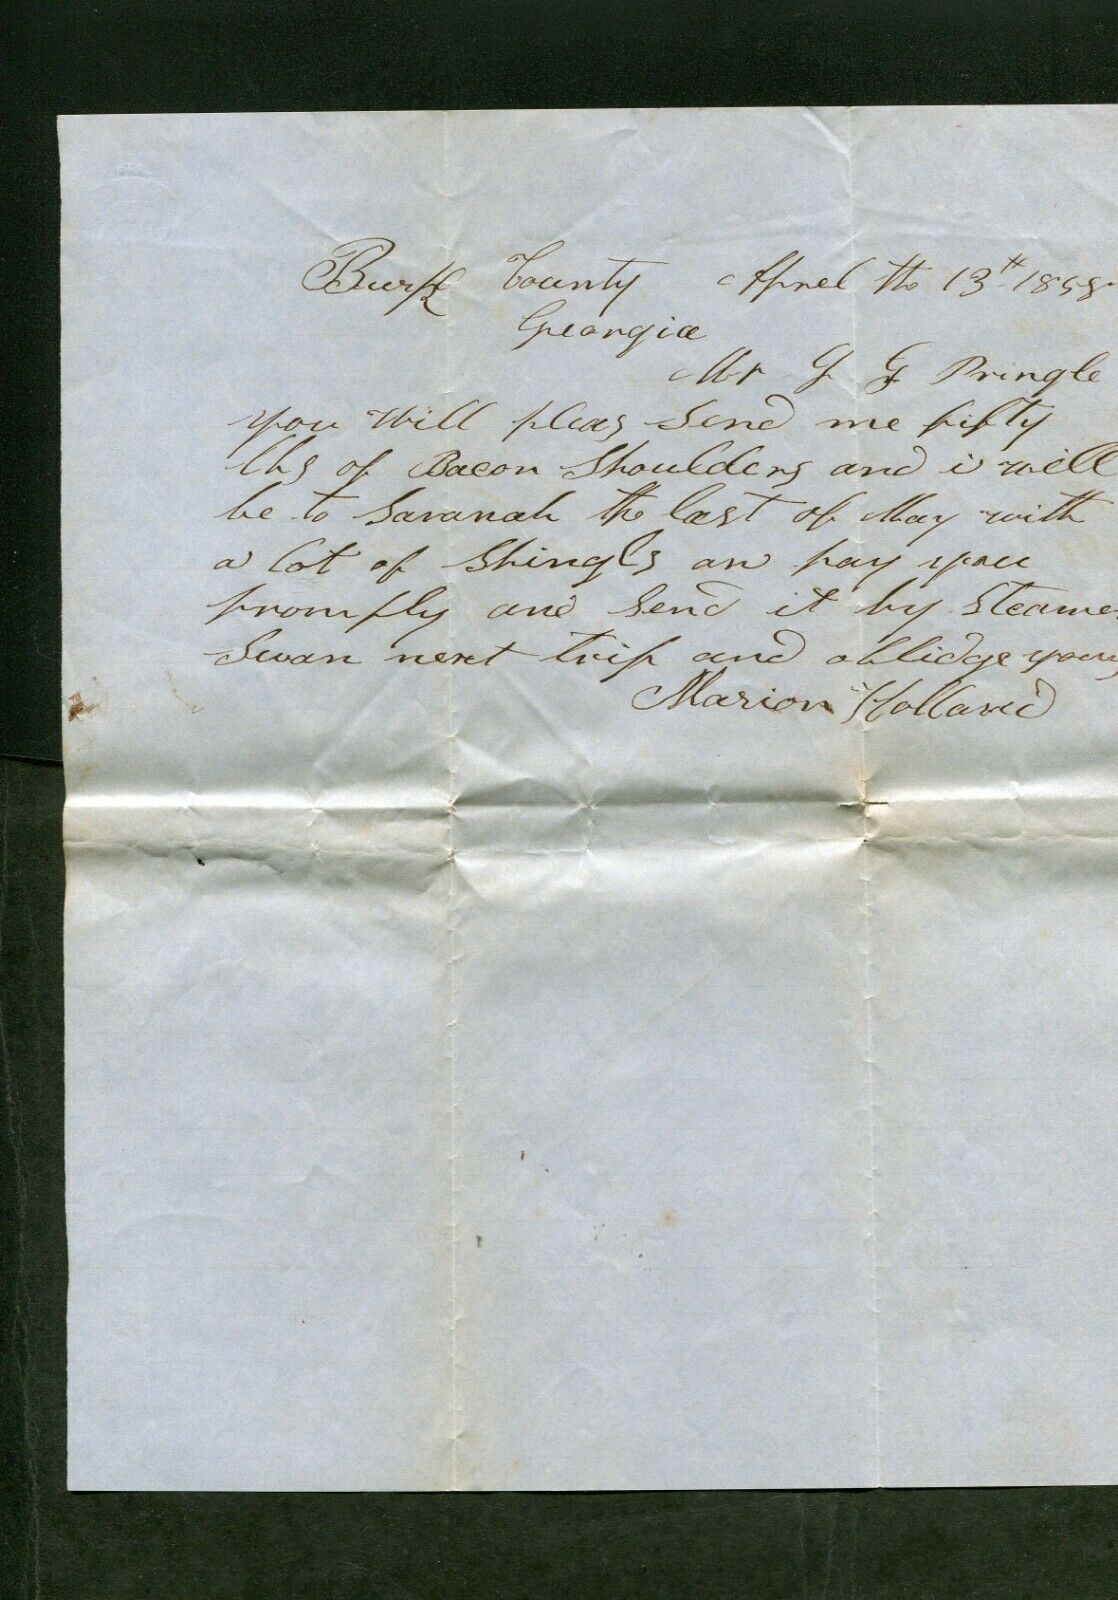 Burk County Aprel the 13th 1855
Georgia
Mr J G Pringle
you will pleas Send me fifty
lbs of Bacon Shoulders and i will
be to Savanah the last of May with
a lot of Shingls an pay you
promply and Send it by Steamer
Swan next trip and oblidge yours
Marion Holland